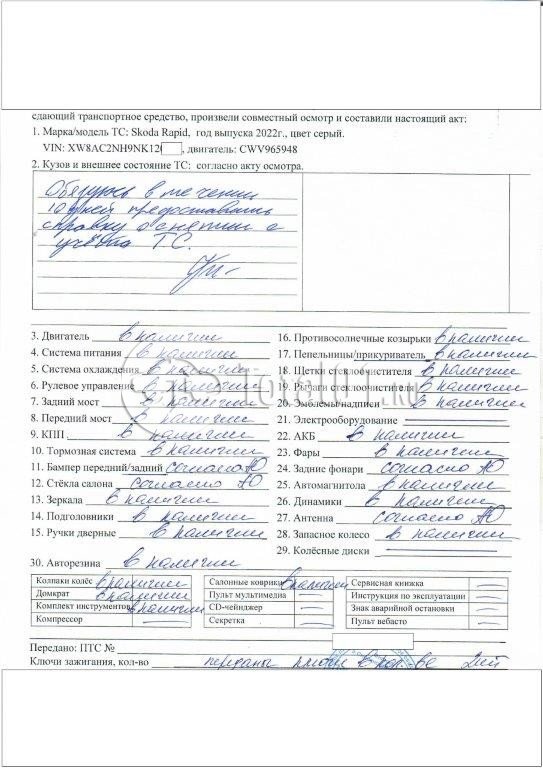 сдающий транспортное средство, произвели совместный осмотр и составили настоящий акт:
1. Марка/модель ТС: Skoda Rapid, год выпуска 2022г., цвет серый.
VIN: XW8AC2NH9NK12, двигатель: CWV965948
2. Кузов и внешнее состояние ТС: согласно акту осмотра.
Обязуюсь в течении
10 дней предоставить
справку о снятии с
учёта ТС.
3. Двигатель в наличии
4. Система питания в наличии
5. Система охлаждения в наличии
6. Рулевое управление в наличии
7. Задний мост в наличии
8. Передний мост в наличии
9. КПП в наличии
10. Тормозная система в наличии
11. Бампер передний/задний согласно АО
12. Стёкла салона согласно АО
13. Зеркала в наличии
14. Подголовники в наличии
15. Ручки дверные в наличии
16. Противосолнечные козырьки в наличии
17. Пепельницы/прикуриватель в наличии
18. Щетки стеклоочистителя в наличии
19. Рычаги стеклоочистителя в наличии
20. Эмблемы/надписи в наличии
21. Электрооборудование —
22. АКБ в наличии
23. Фары в наличии
24. Задние фонари согласно АО
25. Автомагнитола в наличии
26. Динамики в наличии
27. Антенна согласно АО
28. Запасное колесо в наличии
29. Колёсные диски —
30. Авторезина в наличии
Колпаки колёс в наличии Салонные коврики в наличии Сервисная книжка —
Домкрат в наличии Пульт мультимедиа — Инструкция по эксплуатации —
Комплект инструментов в наличии CD-чейнджер — Знак аварийной остановки —
Компрессор — Секретка — Пульт вебасто —
Передано: ПТС №
Ключи зажигания, кол-во переданы ключи в кол-ве